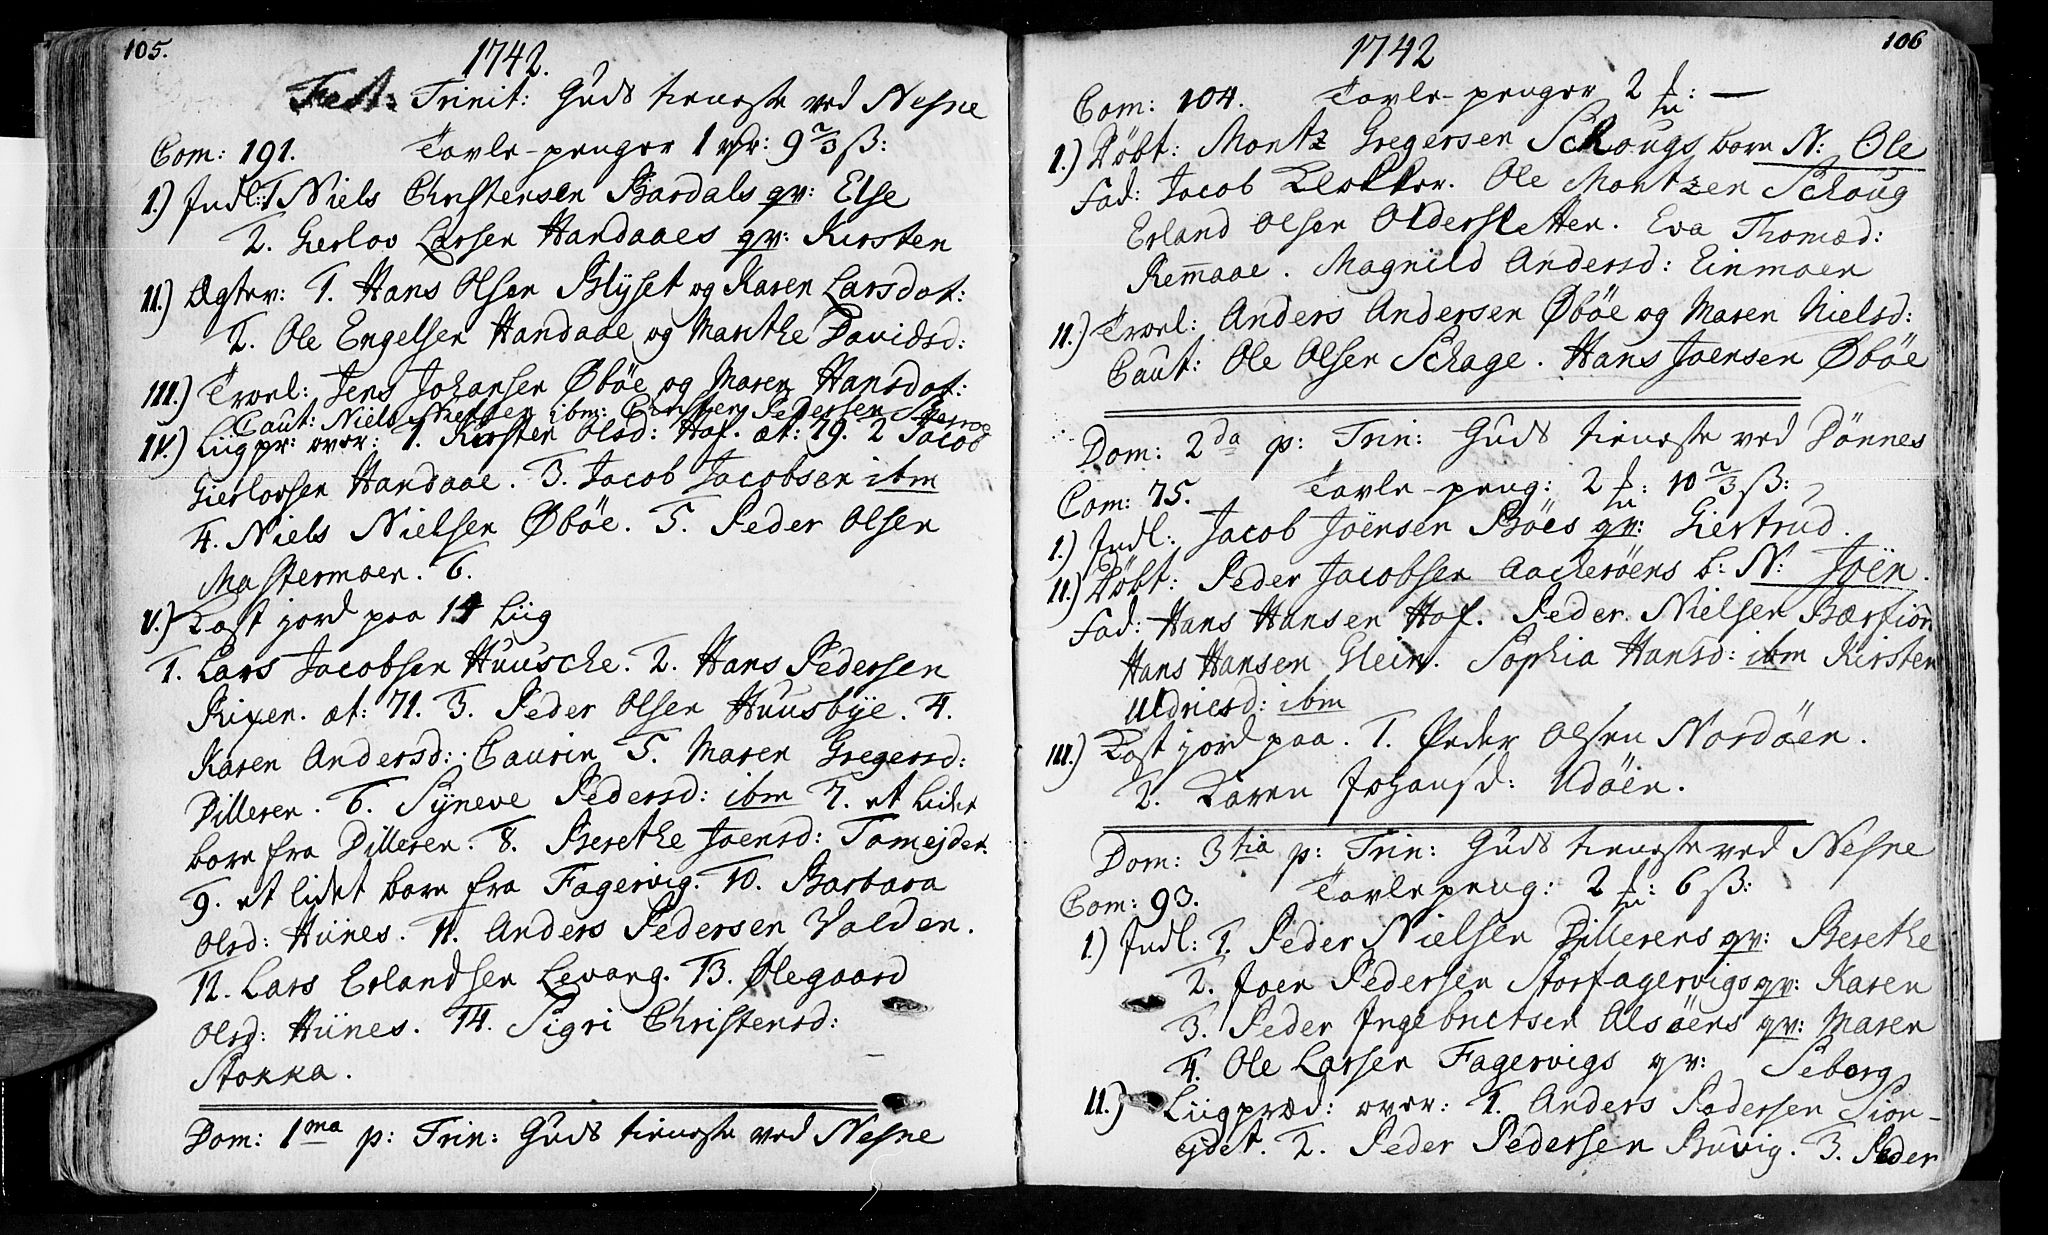 105.
1742.
Fest: Trinit: Guds tieneste ved Nesne
Com: 191. Tavle-penger 1 rdr: 9 2/3 ß:
1.) Indl: 1 Niels Christensen Bardals qv: Else
2. Gierlov Larsen Handaaes qv: Kirsten
11.) Ægtev: 1. Hans Olsen Blÿset og Karen Larsdat:
2. Ole Engelsen Handaae og Marithe Davidsd:
111.) Trol: Jens Johansen Øbøe og Maren Hansdat:
Caut: Niels ibm: Christen Pedersen
1V.) Liigpr: over: 1. Kirsten Olsd: Hof. æt: 79. 2 Jacob
Gierlovsen Handaae. 3. Jacob Jacobsen ibm
4. Niels Nielsen Øbøe. 5. Peder Olsen
Mastermoen. 6.
V.) Kast jord paa 14 Liig
1. Lars Jacobsen Huusche. 2. Hans Pedersen
Rixen. æt: 71. 3. Peder Olsen Huusbÿe. 4.
Karen Andersd: Caurin 5. Maren Gregersd:
Dilleren. 6. Sÿneve Pedersd: ibm 7. et lidet
barn fra Dilleren. 8. Berethe Joensd: Tomejdet.
9. et lidet barn fra Fagervig. 10. Barbara
Olsd: Hünes. 11. Anders Pedersen Valden.
12. Lars Erlandsen Levang. 13. Ølegaard
Olsd: Hünes. 14. Sigri Christensd:
Stokka.
Dom: 1ma p: Trin: Guds tieneste ved Nesne
106
1742
Com: 104. Tavle-penger 2 —
1.) Døbt: Montz Gregersen Schougs barn N: Ole
Fad: Jacob Klokker. Ole Montzen Schoug
Erland Olsen Oldersletten. Eva Thomæd:
Remaae. Magnild Andersd: Einmoen
11.) Trol: Anders Andersen Øbøe og Maren Nielsd:
Caut: Ole Olsen Schage. Hans Joensen Øbøe
Dom: 2da p: Trin: Guds tieneste ved Dönnes
Com: 75. Tavle-peng: 2 10 2/3 ß:
1.) Indl: Jacob Joënsen Böes qv: Giertrud.
11.) Döbt: Peder Jacobsen Aacheröens b: N: Joën.
Fad: Hans Hansen Hof. Peder Nielsen Bærfion
Hans Hansen Glein. Sophia Hansd: ibm Kirsten
Uldricsd: ibm
111.) Kast jord paa. 1. Peder Olsen Nordöen.
2. Karen Johansd: Udöen.
Dom: 3tia p: Trin: Guds tieneste ved Nesne
Com: 93. Tavlepeng: 2 6 ß:
1.) Indl: 1. Peder Nielsen Dillerens qv: Berethe
2. Joen Pedersen Storfagervigs qv: Karen
3. Peder Ingebrictsen Alsöens qv: Maren
4. Ole Larsen Fagervigs qv: Seborg
11.) Liigpræd: over: 1. Anders Pedersen Sion-
ejdet. 2. Peder Pedersen Buvig. 3. Peder